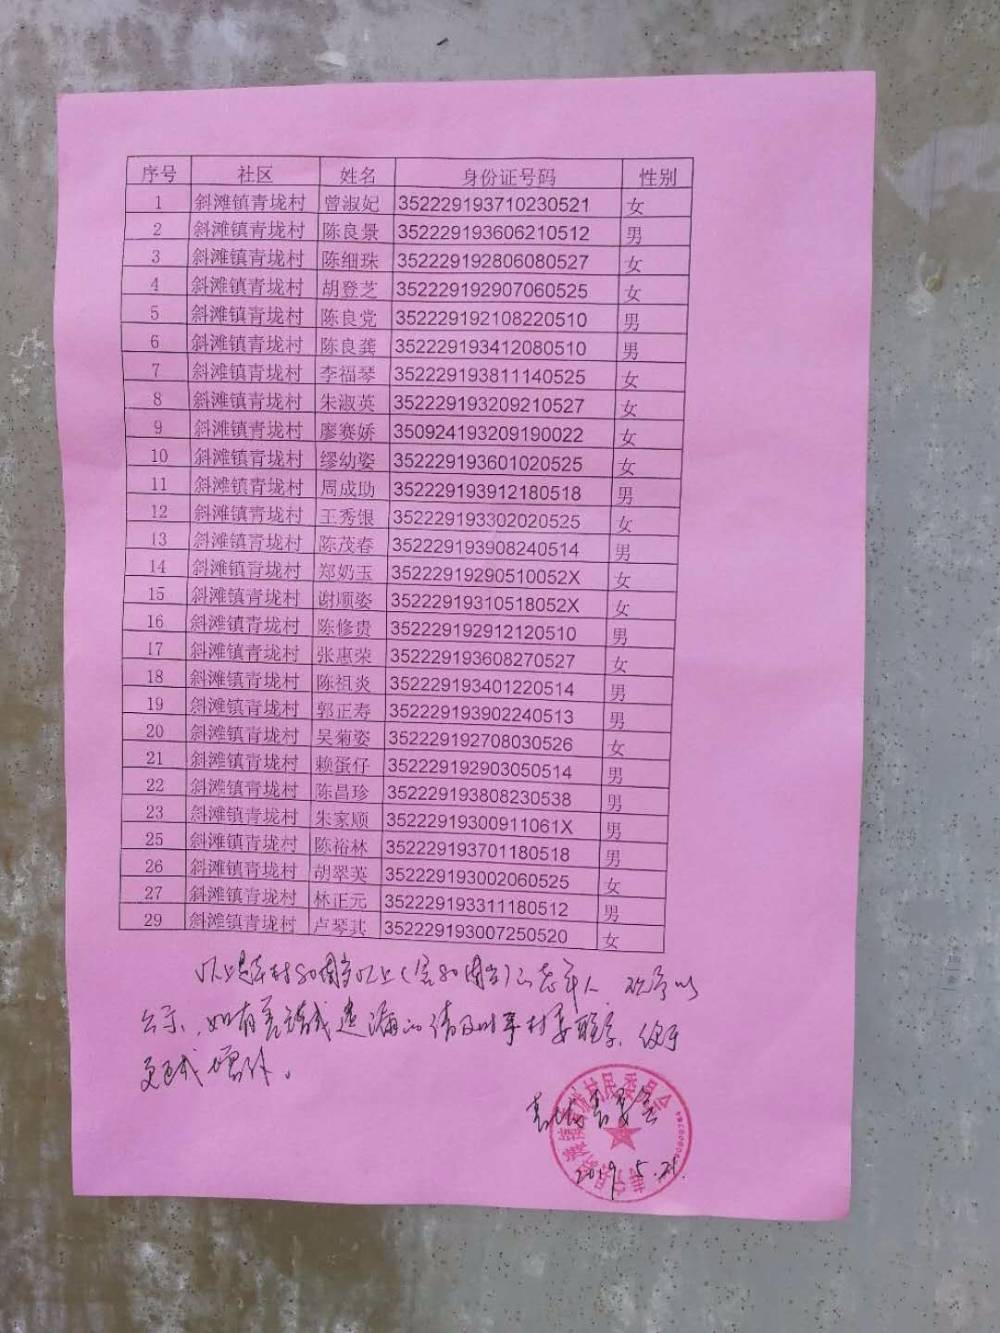 序号 社区 姓名 身份证号码 性别
1 斜滩镇青垅村 曾淑妃 352229193710230521 女
2 斜滩镇青垅村 陈良景 352229193606210512 男
3 斜滩镇青垅村 陈细珠 352229192806080527 女
4 斜滩镇青垅村 胡登芝 352229192907060525 女
5 斜滩镇青垅村 陈良党 352229192108220510 男
6 斜滩镇青垅村 陈良龚 352229193412080510 男
7 斜滩镇青垅村 李福琴 352229193811140525 女
8 斜滩镇青垅村 朱淑英 352229193209210527 女
9 斜滩镇青垅村 廖赛娇 350924193209190022 女
10 斜滩镇青垅村 缪幼姿 352229193601020525 女
11 斜滩镇青垅村 周成助 352229193912180518 男
12 斜滩镇青垅村 王秀银 352229193302020525 女
13 斜滩镇青垅村 陈茂春 352229193908240514 男
14 斜滩镇青垅村 郑奶玉 35222919290510052X 女
15 斜滩镇青垅村 谢顺姿 35222919310518052X 女
16 斜滩镇青垅村 陈修贵 352229192912120510 男
17 斜滩镇青垅村 张惠荣 352229193608270527 女
18 斜滩镇青垅村 陈祖炎 352229193401220514 男
19 斜滩镇青垅村 郭正寿 352229193902240513 男
20 斜滩镇青垅村 吴菊姿 352229192708030526 女
21 斜滩镇青垅村 赖蛋仔 352229192903050514 男
22 斜滩镇青垅村 陈昌珍 352229193808230538 男
23 斜滩镇青垅村 朱家顺 35222919300911061X 男
25 斜滩镇青垅村 陈裕林 352229193701180518 男
26 斜滩镇青垅村 胡翠英 352229193002060525 女
27 斜滩镇青垅村 林正元 352229193311180512 男
29 斜滩镇青垅村 卢琴其 352229193007250520 女
以上是本村80周岁以上(含80周岁)的老年人 现予以
公示、如有差错或遗漏的请及时与村委联系、便于
更改或增补。
青垅村委会
2019.5.21.